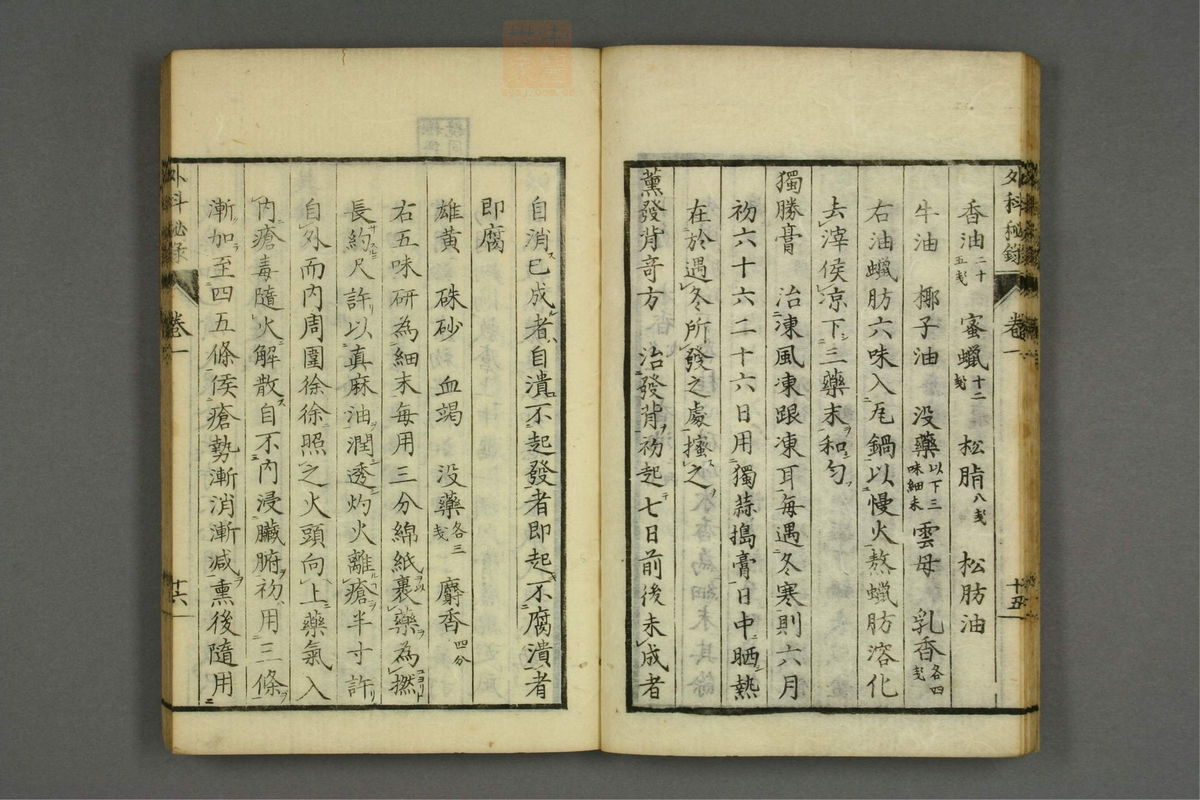 外科秘錄 卷一 十五
香油二十五戔 蜜蠟十二戔 松脂八戔 松肪油
牛油 椰子油 没藥以下三味細末 雲母 乳香各四戔
右油蠟肪六味入瓦鍋以慢火熬蠟肪溶化
去滓候凉下三藥末和匀
獨勝膏 治凍風凍跟凍耳每遇冬寒則六月
初六十六二十六日用獨蒜搗膏日中晒熱
在於遇冬所發之處搽之
薰發背奇方 治發背初起七日前後未成者
自消已成者自潰不起發者即起不腐潰者
即腐
雄黄 硃砂 血竭 没藥各三戔 麝香四分
右五味研為細末每用三分綿紙裹藥為撚
長約尺許以真麻油潤透灼火離瘡半寸許
自外而内周圍徐徐照之火頭向上藥氣入
内瘡毒隨火解散自不内浸臟腑初用三條
漸加至四五條候瘡勢漸消漸減熏後隨用
外科秘錄 卷一 十六